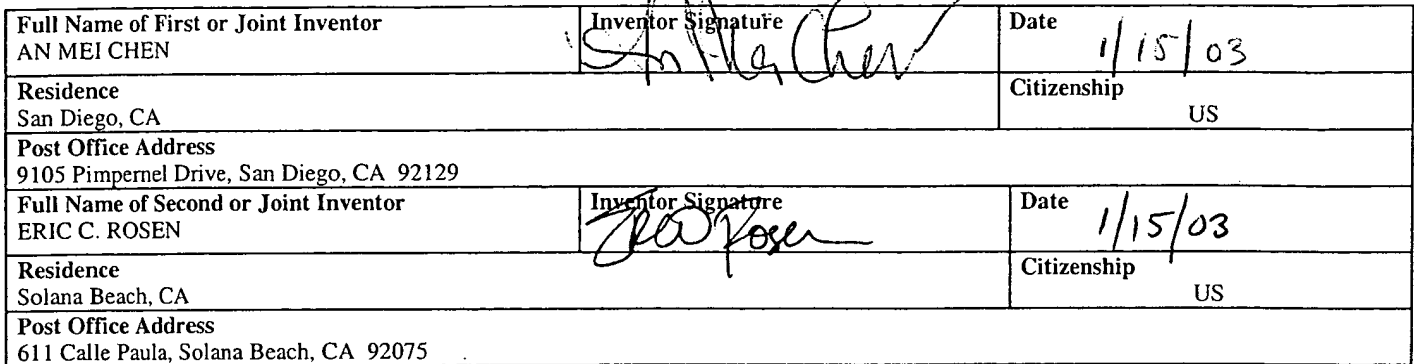 Full Name of First or Joint Inventor
AN MEI CHEN
Inventor Signature
An Mei Chen
Date
1/15/03
Residence
San Diego, CA
Citizenship
US
Post Office Address
9105 Pimpernel Drive, San Diego, CA 92129
Full Name of Second or Joint Inventor
ERIC C. ROSEN
Inventor Signature
Eric Rosen
Date
1/15/03
Residence
Solana Beach, CA
Citizenship
US
Post Office Address
611 Calle Paula, Solana Beach, CA 92075